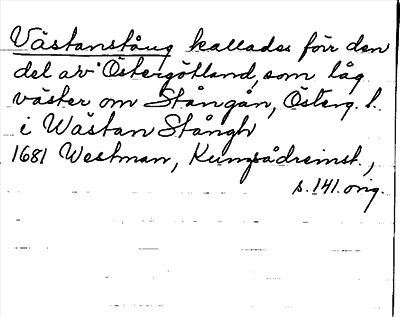 Västanstång kallades förr den
del av Östergötland, som låg
väster om Stångån, Österg. l.
i Wästan Stångh
1681 Westman,
s. 141. orig.